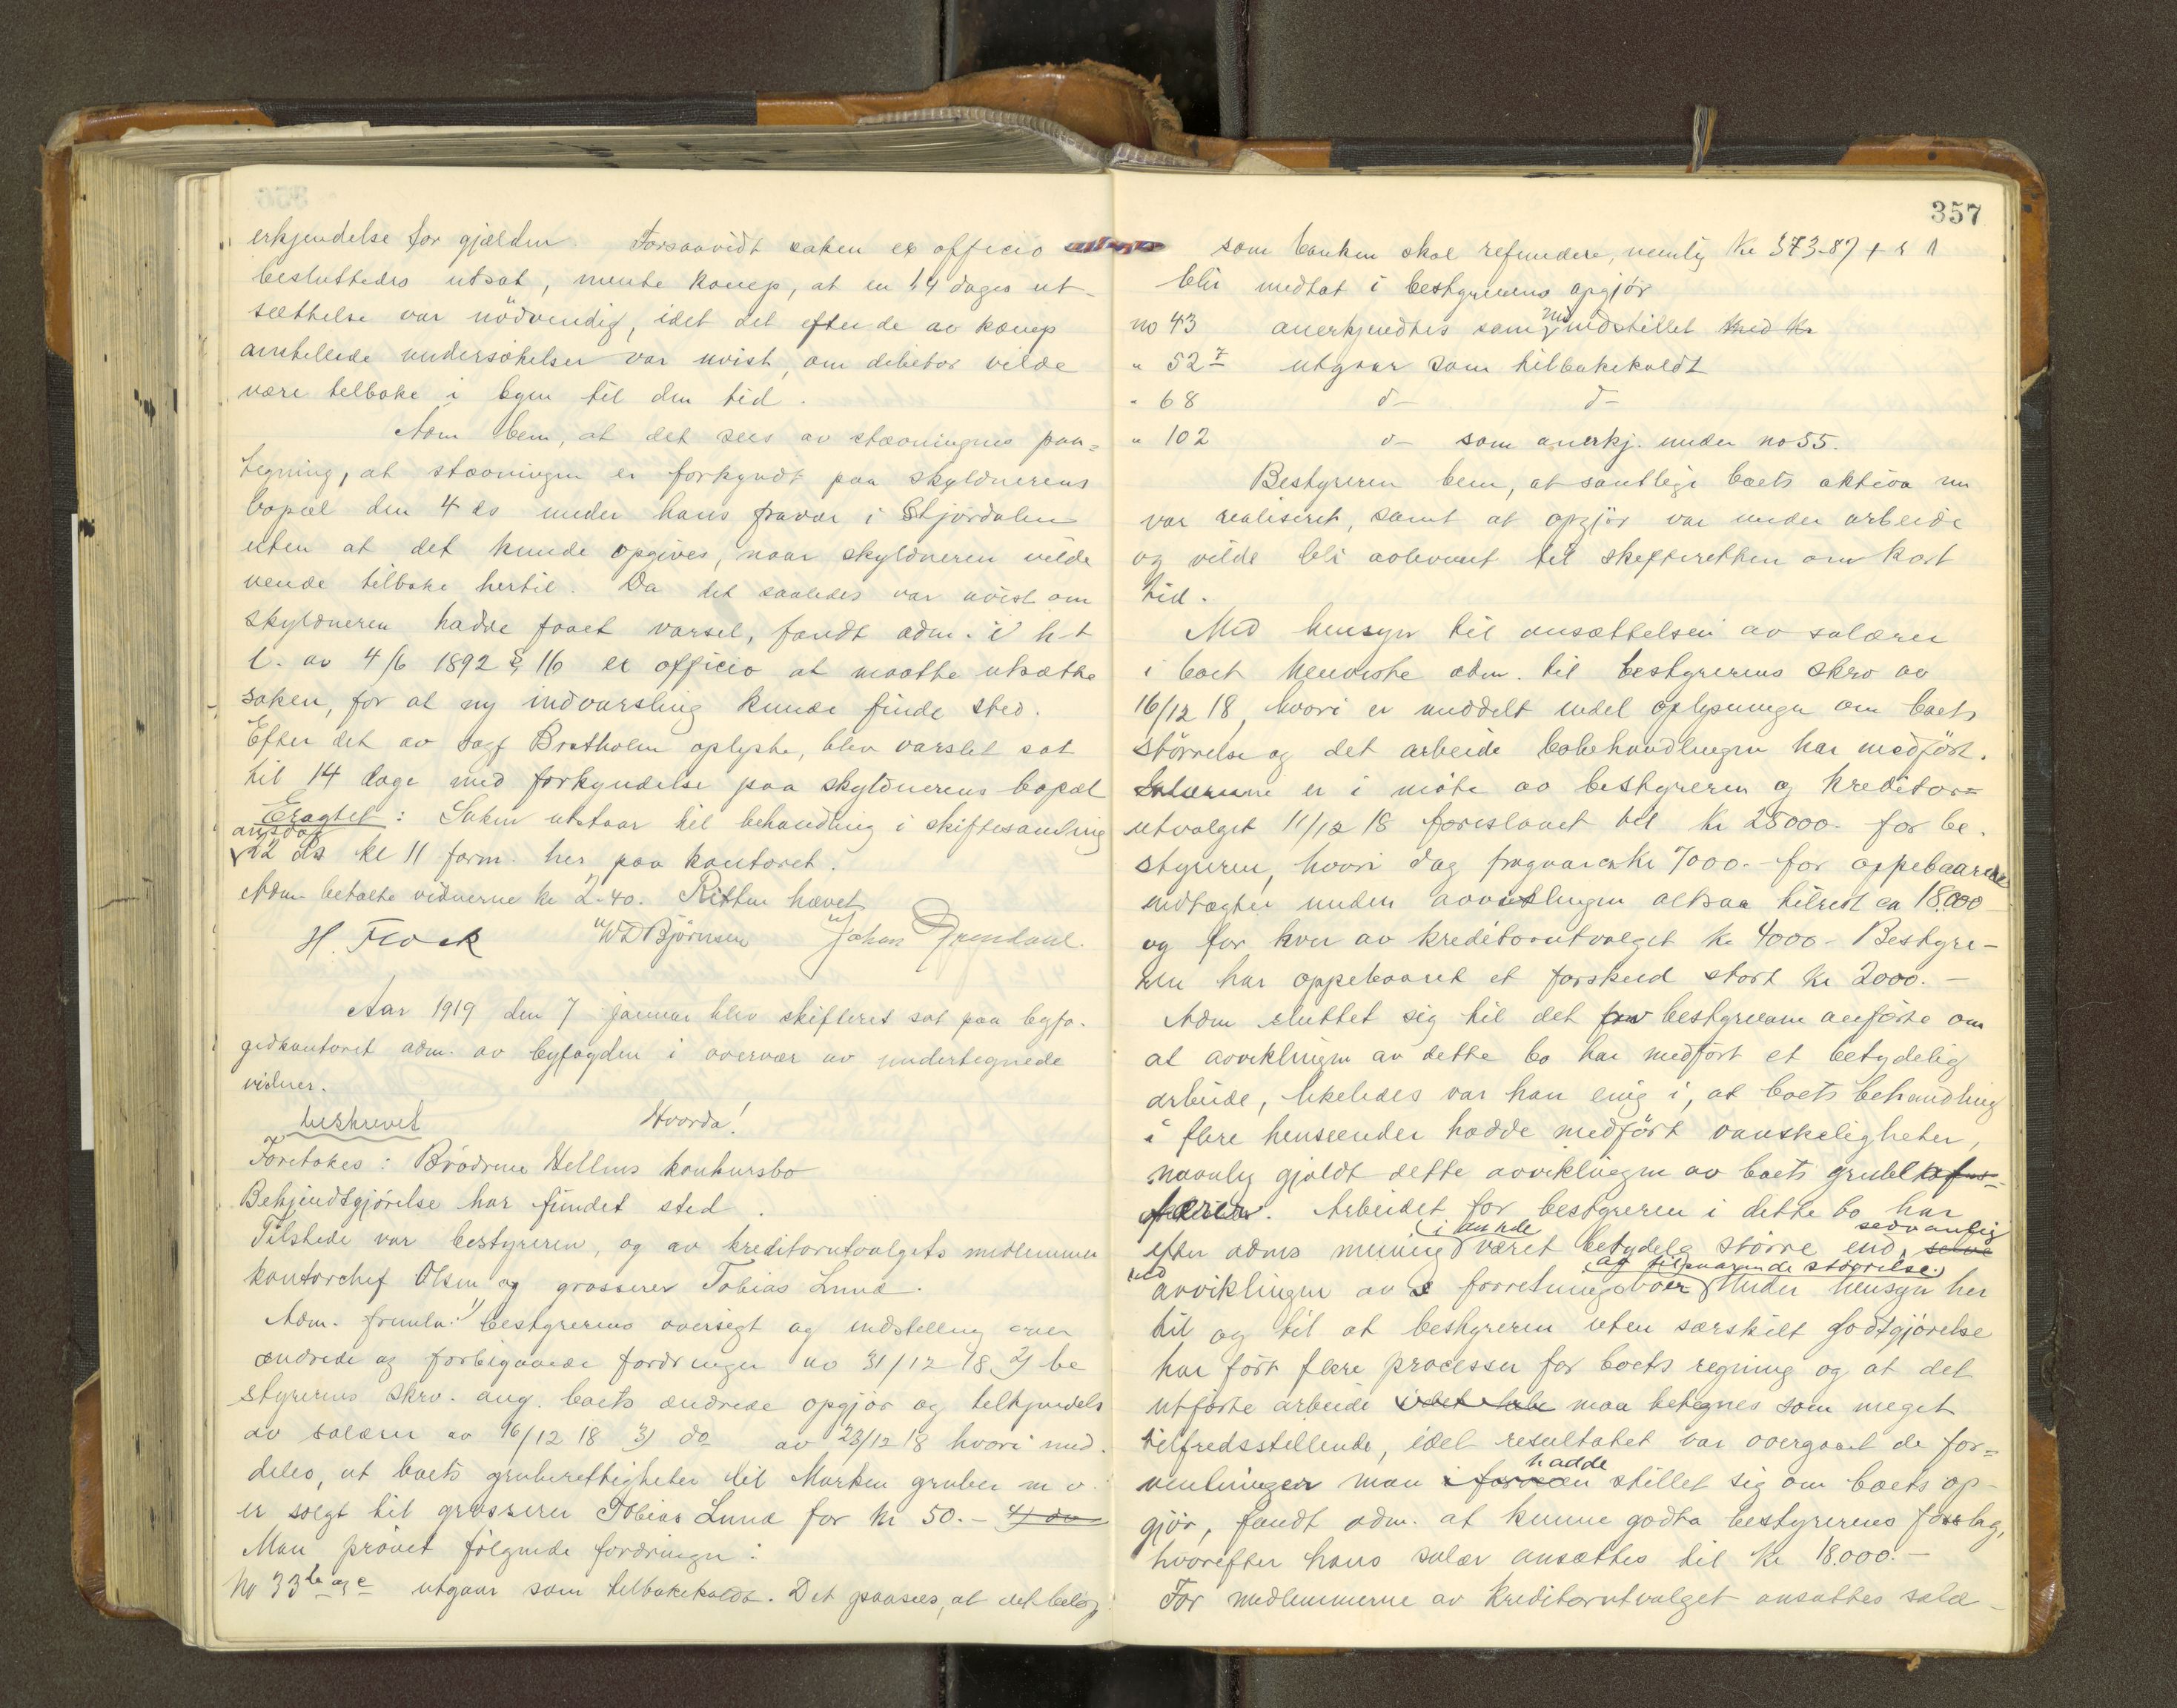 erkjendelse for gjælden. Forsaavidt saken ex officio
besluttedes utsat, mente konep, at en 14 dages ut-
sættelse var nödvendig, idet det efter de av konep
anstillede undersökelser var uvist, om debitor vilde
være tilbake i byen til den tid.
Adm bem, at det sees av stævningens paa=
tegning, at stævningen er forkyndt paa skyldnerens
bopæl den 4 ds under hans fravær i Stjørdalen
uten at det kunde opgives, naar skyldneren vilde
vende tilbake hertil. Da det saaledes var uvist om
skyldneren hadde faaet varsel, fandt adm. i h-t
l. av 4/6 1892 § 16 ex officio at maatte utsætte
saken, for at ny indvarsling kunde finde sted.
Efter det av sagf Bratholm oplyste, blev varslet sat
til 14 dage med forkyndelse paa skyldnerens bopæl
Eragtet: Saken utstaar til behandling i skiftesamling
22 ds kl 11 form. her paa kontoret.
Adm. betalte vidnerne kr 2.40. Retten hævet
H. Flock WD Bjørnsen Johan Grendahl.
Aar 1919 den 7 januar blev skifteret sat paa byfo-
gedkontoret adm. av byfogden i overvær av undertegnede
vidner.
beskrevet Hvorda!
Foretokes: Brödrene Hellms konkursbo
Bekjendtgjörelse har fundet sted.
Tilstede var bestyreren, og av kreditorutvalgets medlemmer
kontorchef Olsen og grosserer Tobias Lund.
Adm. freml. 1) bestyrerens oversigt og indstilling over
ændrede og forbigaaede fordringer av 31/12 18 2) be
styrerens skrv. ang. boets ændrede opgjör og tilkjendelse
av salærer av 16/12 18 3) do av 23/12 18 hvori med-
deles, at boets gruberettigheter til Marken gruber m v.
er solgt til grosserer Tobias Lund for kr 50.- 4) do
Man prövet fölgende fordringer:
No 33 b og c utgaar som tilbakekaldt. Det paasees, at det belöp
357
som banken skal refundere, nemlig Kr 573-87 +
blir medtat i bestyrerens opgjör
no 43 anerkjendtes som indstillet med kr
" 52 utgaar som tilbakekaldt
" 68 d- d-
" 102 d- som anerkj. under no 55.
Bestyreren bem, at samtlige boets aktiva nu
var realiseret, samt at opgjör var under arbeide
og vilde bli avlevert til skifteretten om kort
tid.
Med hensyn til ansættelsen av salærer
i boet henviste adm. til bestyrerens skrv av
16/12 18, hvori er meddelt endel oplysninger om boets
störrelse og det arbeide bobehandlingen har medfört.
Salærerne er i möte av bestyreren og kreditor=
utvalget 11/12 18 foreslaaet til kr 25000.- for be-
styreren, hvori dog fragaar ca kr 7000.- for oppebaarne
indtægter under avviklingen altsaa tilrest ca 18.000
og for hver av kreditorutvalget kr 4000.- Bestyre-
ren har oppebaaret et forskud stort kr 2000.-
Adm sluttet sig til det bestyreren anförte om
at avviklingen av dette bo har medfört et betydelig
arbeide, likeledes var han enig i, at boets behandling
i flere henseender hadde medfört vanskeligheter,
navnlig gjaldt dette avviklingen av boets grube
færer. Arbeidet for bestyreren i dette bo har
efter adms mening været betydelig större end sedvanlig
ved
avviklingen av forretningsboer av tilsvarende störrelse. Under hensyn her
til og til at bestyreren uten særskilt godtgjörelse
har fört flere processer for boets regning og at det
utförte arbeide maa betegnes som meget
tilfredsstillende, idet resultatet var overgaaet de for=
ventninger man hadde stillet sig om boets op-
gjör, fandt adm. at kunne godta bestyrerens forslag,
hvorefter hans salær ansættes til kr 18.000.-
For medlemmerne av kreditorutvalget ansattes salæ-